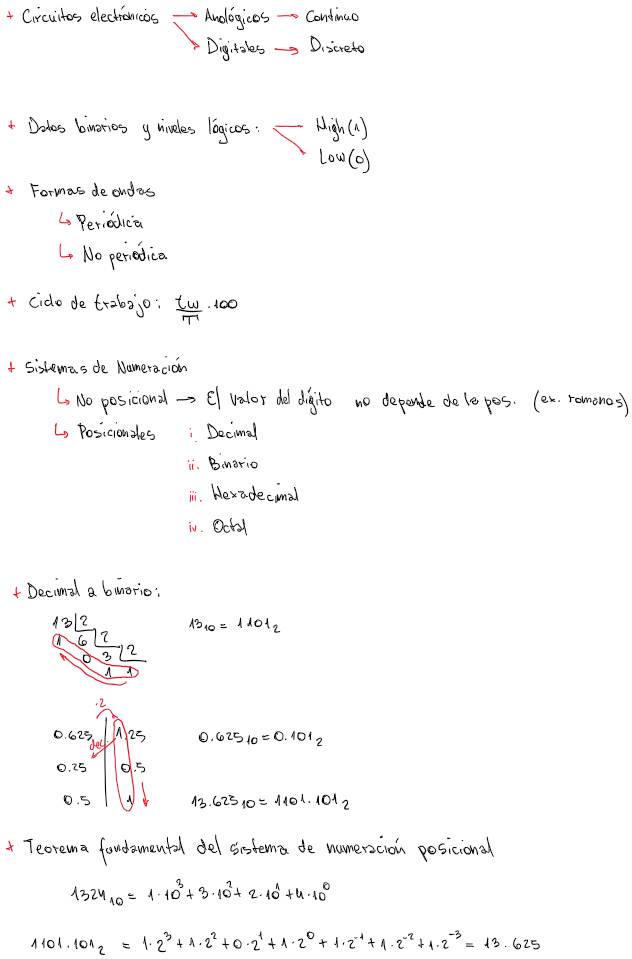 + Circuitos electrónicos → Analógicos → Continuo
→ Digitales → Discreto
+ Datos binarios y niveles lógicos: — High (1)
Low (0)
+ Formas de ondas
↳ Periódica
↳ No periódica
+ Ciclo de trabajo: tw/T · 100
+ Sistemas de Numeración
↳ No posicional → El valor del dígito no depende de la pos. (ex. romanos)
↳ Posicionales i. Decimal
ii. Binario
iii. Hexadecimal
iv. Octal
+ Decimal a binario:
13 | 2
1 6 | 2 13₁₀ = 1101₂
0 3 | 2
1 1
·2
0.625 | 1.25 0.625₁₀ = 0.101₂
dec.
0.25 | 0.5
0.5 | 1 13.625₁₀ = 1101.101₂
+ Teorema fundamental del sistema de numeración posicional
1324₁₀ = 1·10³ + 3·10² + 2·10¹ + 4·10⁰
1101.101₂ = 1·2³ + 1·2² + 0·2¹ + 1·2⁰ + 1·2⁻¹ + 1·2⁻² + 1·2⁻³ = 13.625